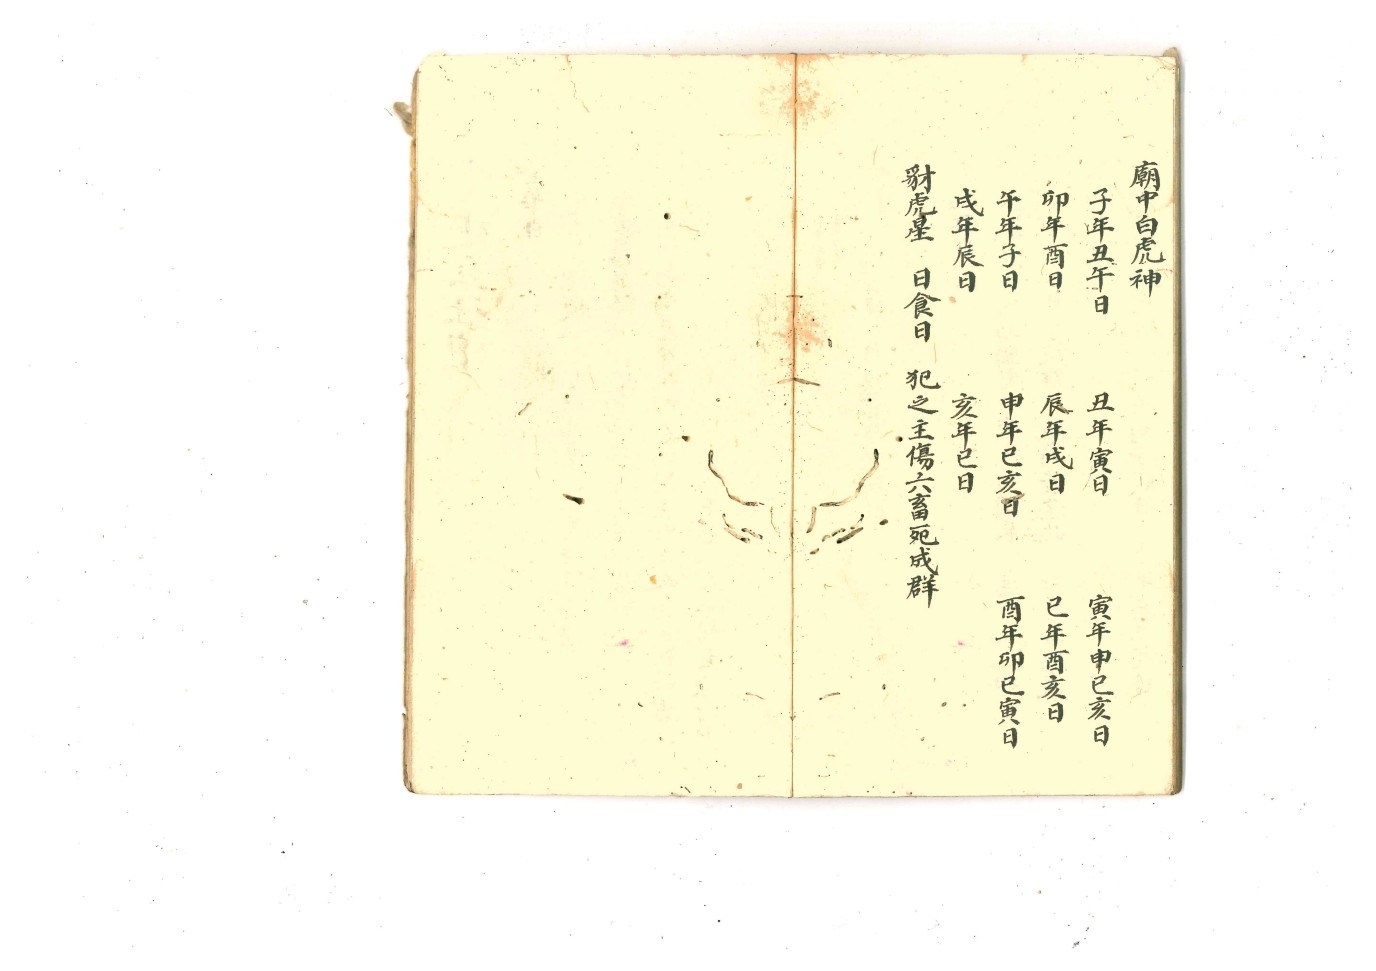 廟中白虎神
子年丑午日　丑年寅日　寅年申巳亥日
卯年酉日　辰年戌日　巳年酉亥日
午年子日　申年巳亥日　酉年卯巳寅日
戌年辰日　亥年巳日
豺虎星　日食日　犯之主傷六畜死成群